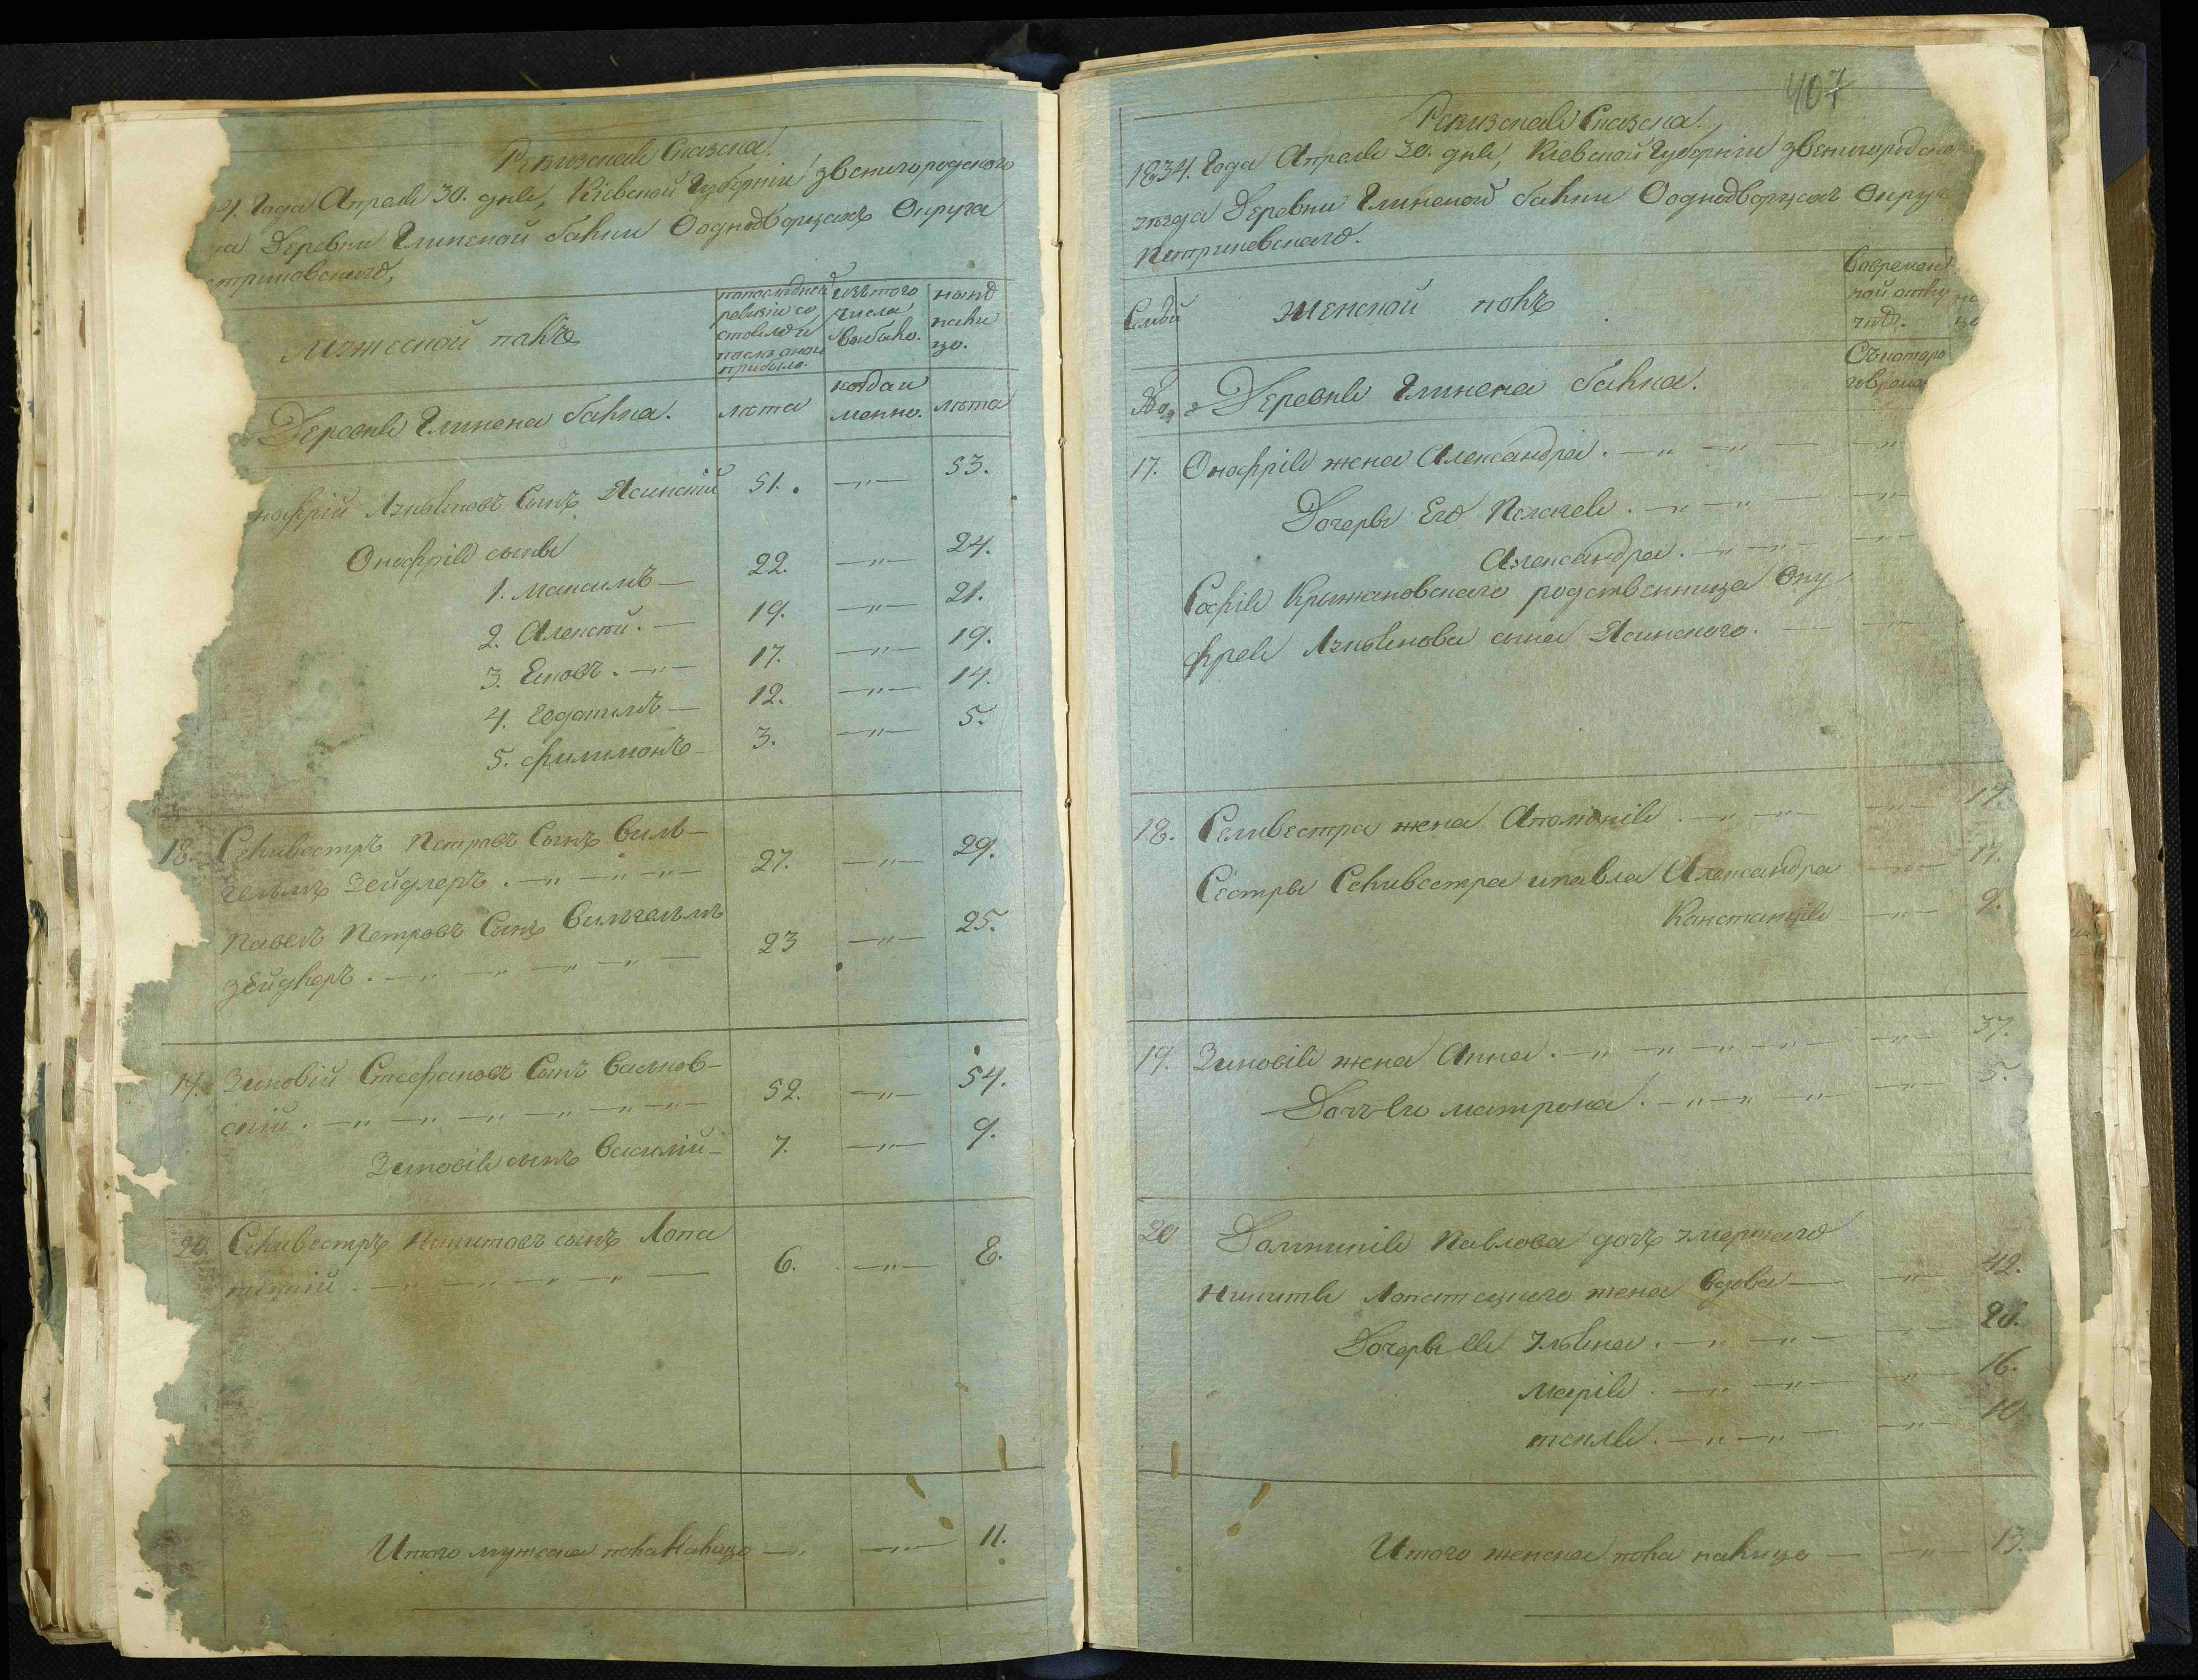 Ревизская Сказка.
4. Года Апреля 30. дня, Кіевской Губерніи Звенигородского
Деревни Глиненой балки Оодноdворцахъ Округа
етриковского,
Мужеской полъ
попоследней ревизіи со стояло и после оной прибыло.
изъ того числа выбыло.
ныне на лицо.
Деревня Глинена балка.
лета
когда и менно.
лета
нофрій Лукьяновъ Сынъ Ясинскій 51. —„— 53.
Онофрія сыны
1. Максимъ — 22. —„— 24.
2. Алексей. — 19. —„— 21.
3. Яковъ. —„— 17. —„— 19.
4. Евдокимъ — 12. —„— 14.
5. Филимонъ — 3. —„— 5.
18. Селивестръ Петровъ Сынъ Виль-
гельмъ Зейдлеръ. —„— —„— —„— 27. —„— 29.
Павелъ Петровъ Сынъ Вильгельмъ
Зейдлеръ. —„— —„— —„— —„— 23 —„— 25.
19. Зиновій Стефановъ Сынъ Васьков-
скій. —„— —„— —„— —„— —„— 52. —„— 54.
Зиновія сынъ Василій — 7. —„— 9.
20. Селивестръ Никитовъ сынъ Лопа
тецкій. —„— —„— —„— —„— 6. —„— 8.
Итого мужеска пола налицо —„— —„— 11.
407
Ревизская Сказка.
1834. Года Апреля 30. дня, Кіевской Губерніи Звенигородско
уезда Деревни Глиненой балки Оодноdворцахъ Округа
Петриковского.
Семьи
Женской полъ
Вовремен ной отлу чке.
на
№
Деревня Глинена балка.
Съкотаро
17. Онофрія жена Александра. —„— —„— —„—
Дочеры Его Пелагея. —„— —„— —„—
Александра. —„— —„— —„—
Софія Крыжановского родственница Ону
фрея Лукьянова сына Ясинского. — —„—
18. Селивестра жена Аполонія. —„— —„— —„— 17.
Сестры Селивестра иПавла Александра —„— 17.
Констанція —„— 9.
19. Зиновія жена Анна. —„— —„— —„— —„— —„— 37.
Дочъ Ихъ Матрона. —„— —„— —„— —„— 5.
20 Домникія Павлова дочъ умершаго
Никиты Лопатецкого жена вдова — —„— 42.
Дочеры Ея Ульяна. —„— —„— —„— 20.
Марія. —„— —„— —„— 16.
Текля. —„— —„— —„— 10
Итого женска пола налицо — —„— 13.